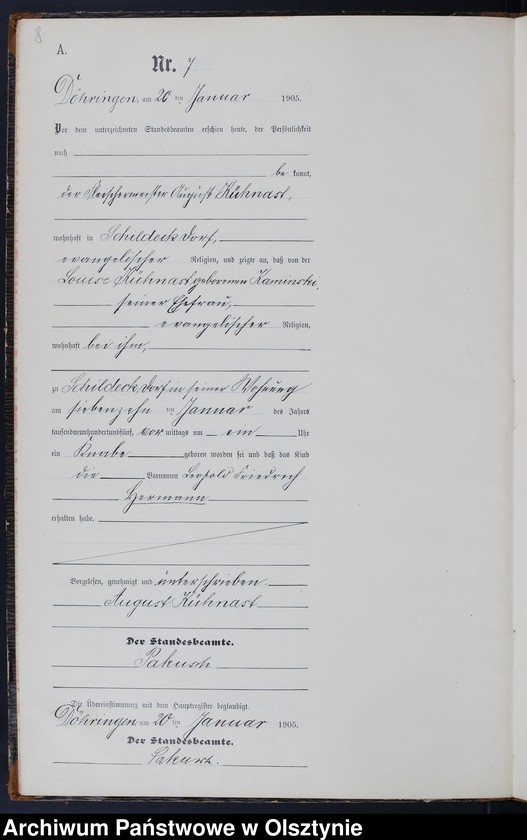 8
A.
Nr. 7
Döhringen, am 20 ten Januar 1905.
Vor dem unterzeichneten Standesbeamten erschien heute, der Persönlichkeit
nach
be kannt,
der Fleischermeister August Kühnast,
wohnhaft in Schildeck Dorf,
evangelischer Religion, und zeigte an, daß von der
Louise Kühnast geborenen Kaminski,
seiner Ehefrau,
evangelischer Religion,
wohnhaft bei ihm,
zu Schildeck, Dorf in seiner Wohnung
am siebenzehn ten Januar des Jahres
tausendneunhundertundfünf, vor mittags um ein Uhr
ein Knabe geboren worden sei und daß das Kind
die Vornamen Leopold Friedrich
Hermann
erhalten habe.
Vorgelesen, genehmigt und unterschrieben.
August Kühnast
Der Standesbeamte.
Die Übereinstimmung mit dem Hauptregister beglaubigt
Döhringen, am 20 ten Januar 1905.
Der Standesbeamte.
Archiwum Państwowe w Olsztynie